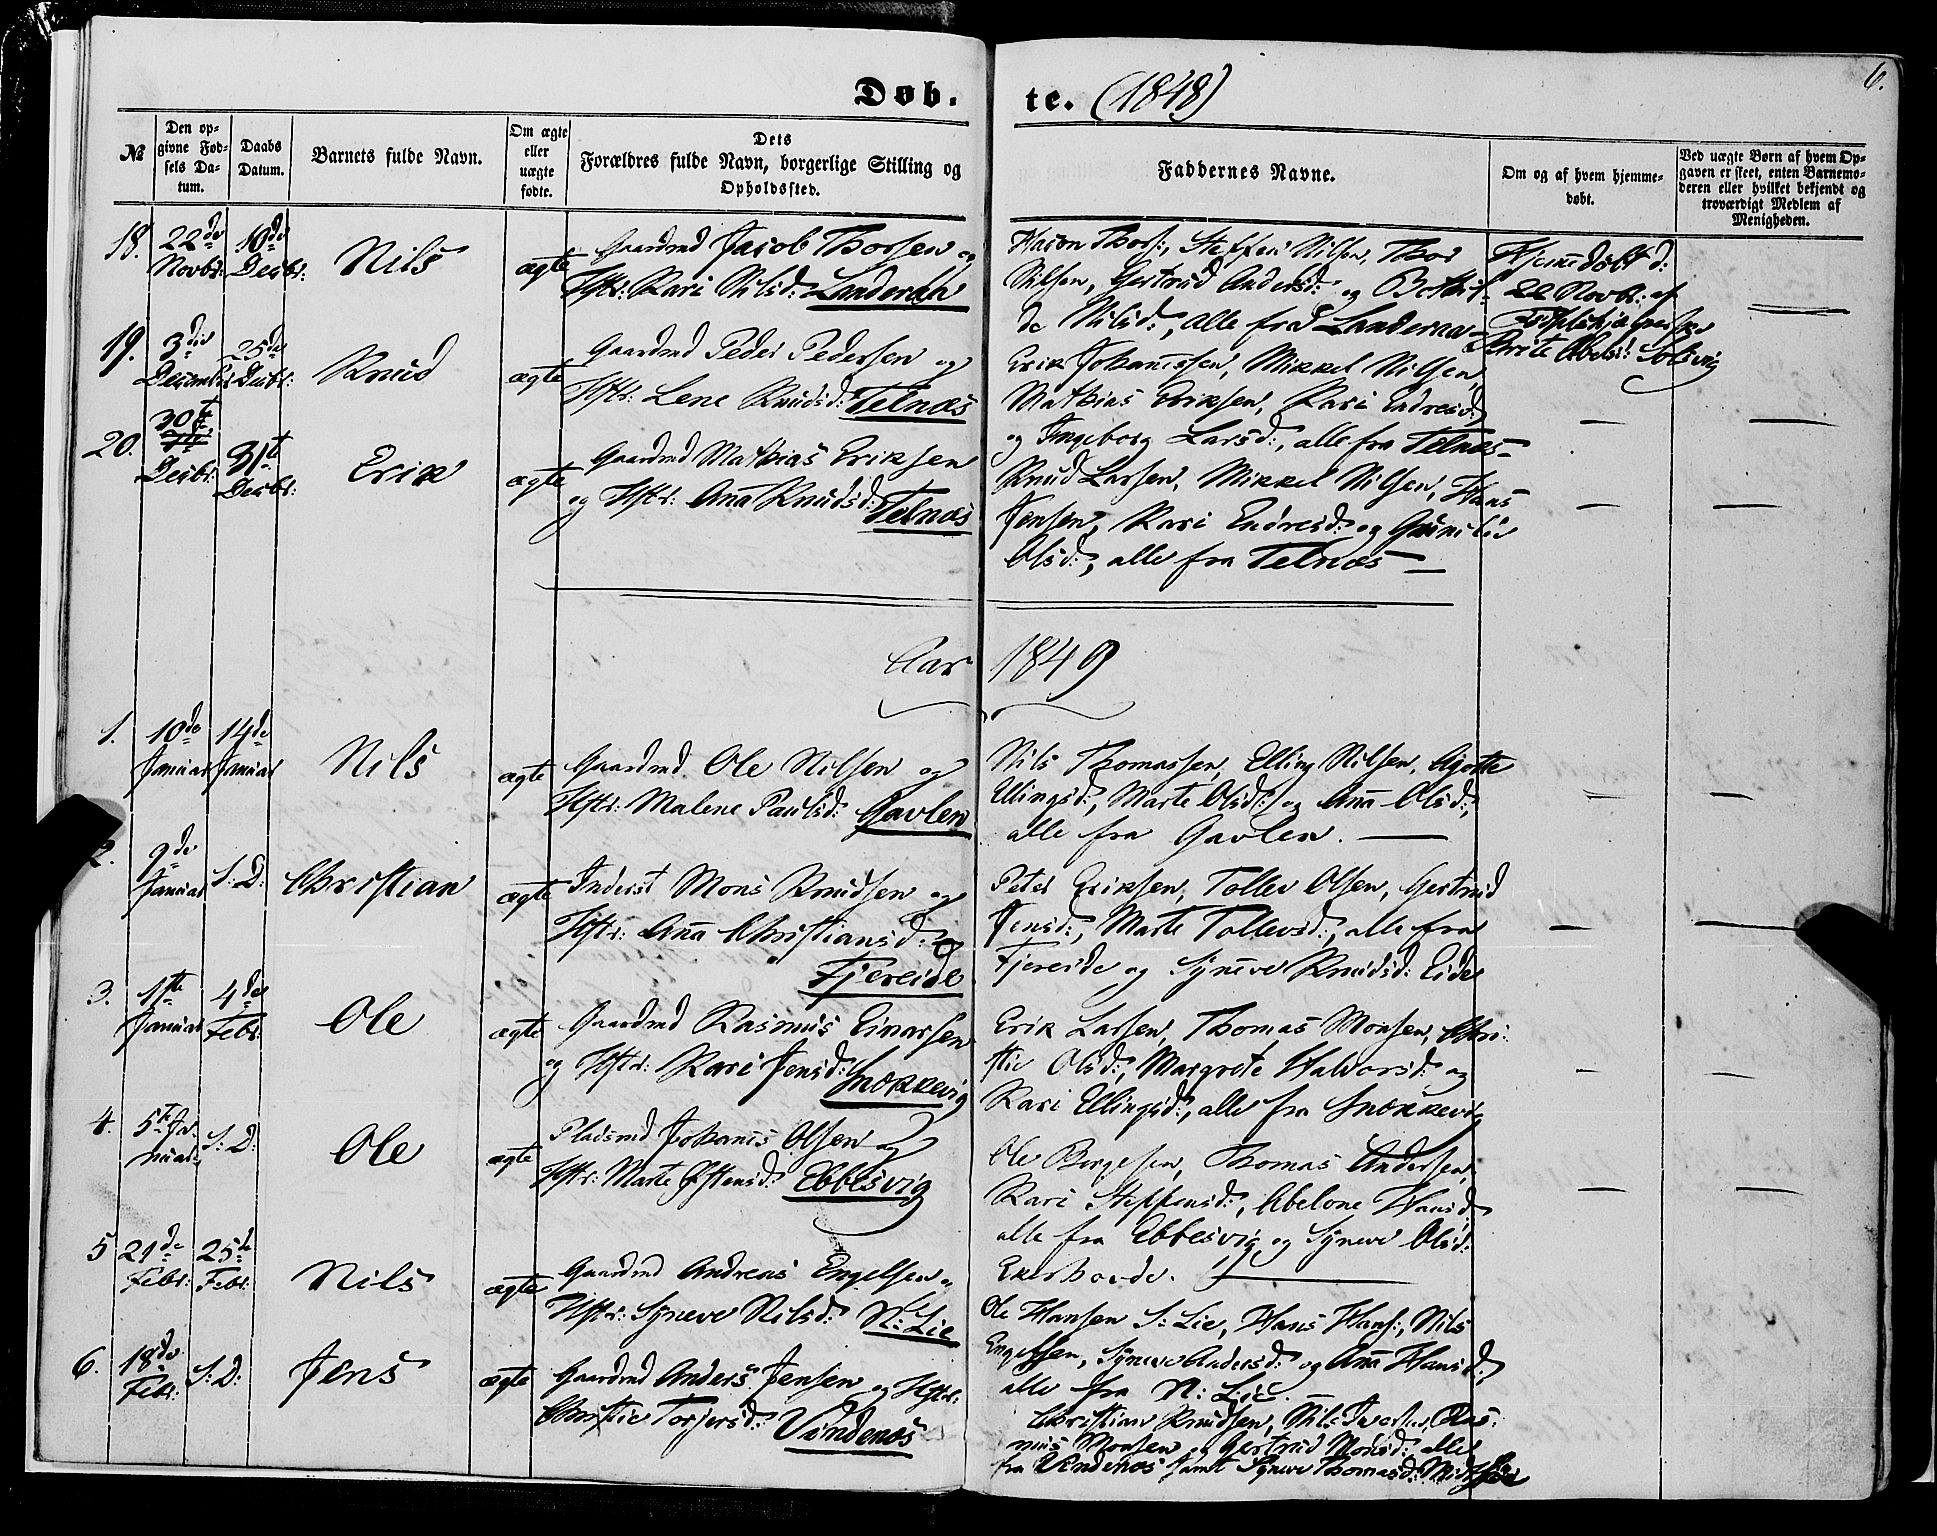 Døb.
te. (1848)
6.
№
Den op-
givne Fød-
sels Da-
tum.
Daabs
Datum.
Barnets fulde Navn.
Om ægte
eller
uægte
fødte.
Dets
Forældres fulde Navn, borgerlige Stilling og
Opholdssted.
Faddernes Navne.
Om og af hvem hjemme-
døbt.
Ved uægte Børn af hvem Op-
gaven er skeet, enten Barnemo-
deren eller hvilket bekjendt og
troværdigt Medlem af
Menigheden.
18.
22de
Novbr:
10de
Decbr:
Nils
ægte
Gaardmd Jacob Thorsen og
Hstr: Kari Nilsd: Landeraa
Thors:, Steffen Nilsen, Thor
Nilsen, Gertrud Andersd: og Bothil-
de Nilsd:, alle fra Landeraa -
Hjemedøbt d:
22 Novbr: af
Brite Abelsd: Solsvig
19.
3die
December
25de
Decbr:
Knud
ægte
Gaardmd Peder Pedersen og
Hstr: Lene Knudsd: Telnæs
Erik Johannssen, Mikkel Nilsen,
Mathias Eriksen, Kari Endresd:
og Ingeborg Larsd:, alle fra Telnæs -
20.
30te
Decbr:
31te
Decbr:
Erik
ægte
Gaardmd Mathias Eriksen
og Hstr: Ana Knudsd: Telnæs
Knud Larsen, Mikkel Nilsen, Hans
Jensen, Kari Endresd: og Gunilde
Olsd:, alle fra Telnæs -
Aar 1849
1.
10de
Januar
14de
Januar
Nils
ægte
Gaardmd. Ole Nilsen og
Hstr: Malene Paulsd: Gavlen
Nils Thomassen, Elling Nilsen, Agotte
Ellingsd:, Marte Olsd: og Ana Olsd:,
alle fra Gavlen. -
2.
9de
Januar
S: D:
Christian
ægte
Inderst Mons Knudsen og
Hstr: Ana Christiansd:
Fjereide
Peter Eriksen, Tollev Olsen, Gertrud
Jensd:, Marte Tollevsd:, alle fra
Fjereide og Syneve Knudsd: Eide
3.
1ste
Januar
4de
Febr:
Ole
ægte
Gaardmd Rasmus Einarsen
og Hstr: Kari Jensd: Snekkevig
Erik Larsen, Thomas Monsen, Chri-
stie Olsd:, Margrete Haldorsd: og
Kari Ellingsd:, alle fra Snekkevig
4.
5te Ja-
nuar
S: D:
Ole
ægte
Pladsmd Johans Olsen og
Hstr: Marte Østensd: Ebbesvig
Ole Børgesen, Thomas Andersen,
Kari Steffensd:, Abelone Hansd:
alle fra Ebbesvig og Syneve Olsd:
Ekerhovde.
5
21de
Febr:
25de
Febr:
Nils
ægte
Gaardmd Andreas Engelsen og
Hstr: Syneve Nilsd: N: Lie
Ole Hansen S: Lie, Hans Hans:, Nils
Engelsen, Syneve Andersd: og Ana Hansd:
alle fra N: Lie.
6.
18de
Febr:
S: D:
Jens
ægte
Gaardmd Anders Jensen og Hstr:
Christie Torjersd: Vindenæs
Christian Knudsen, Nils Iversen, Ras-
mus Monsen og Gertrud Monsd: alle
fra Vindenæs samt Syneve Thomasd: